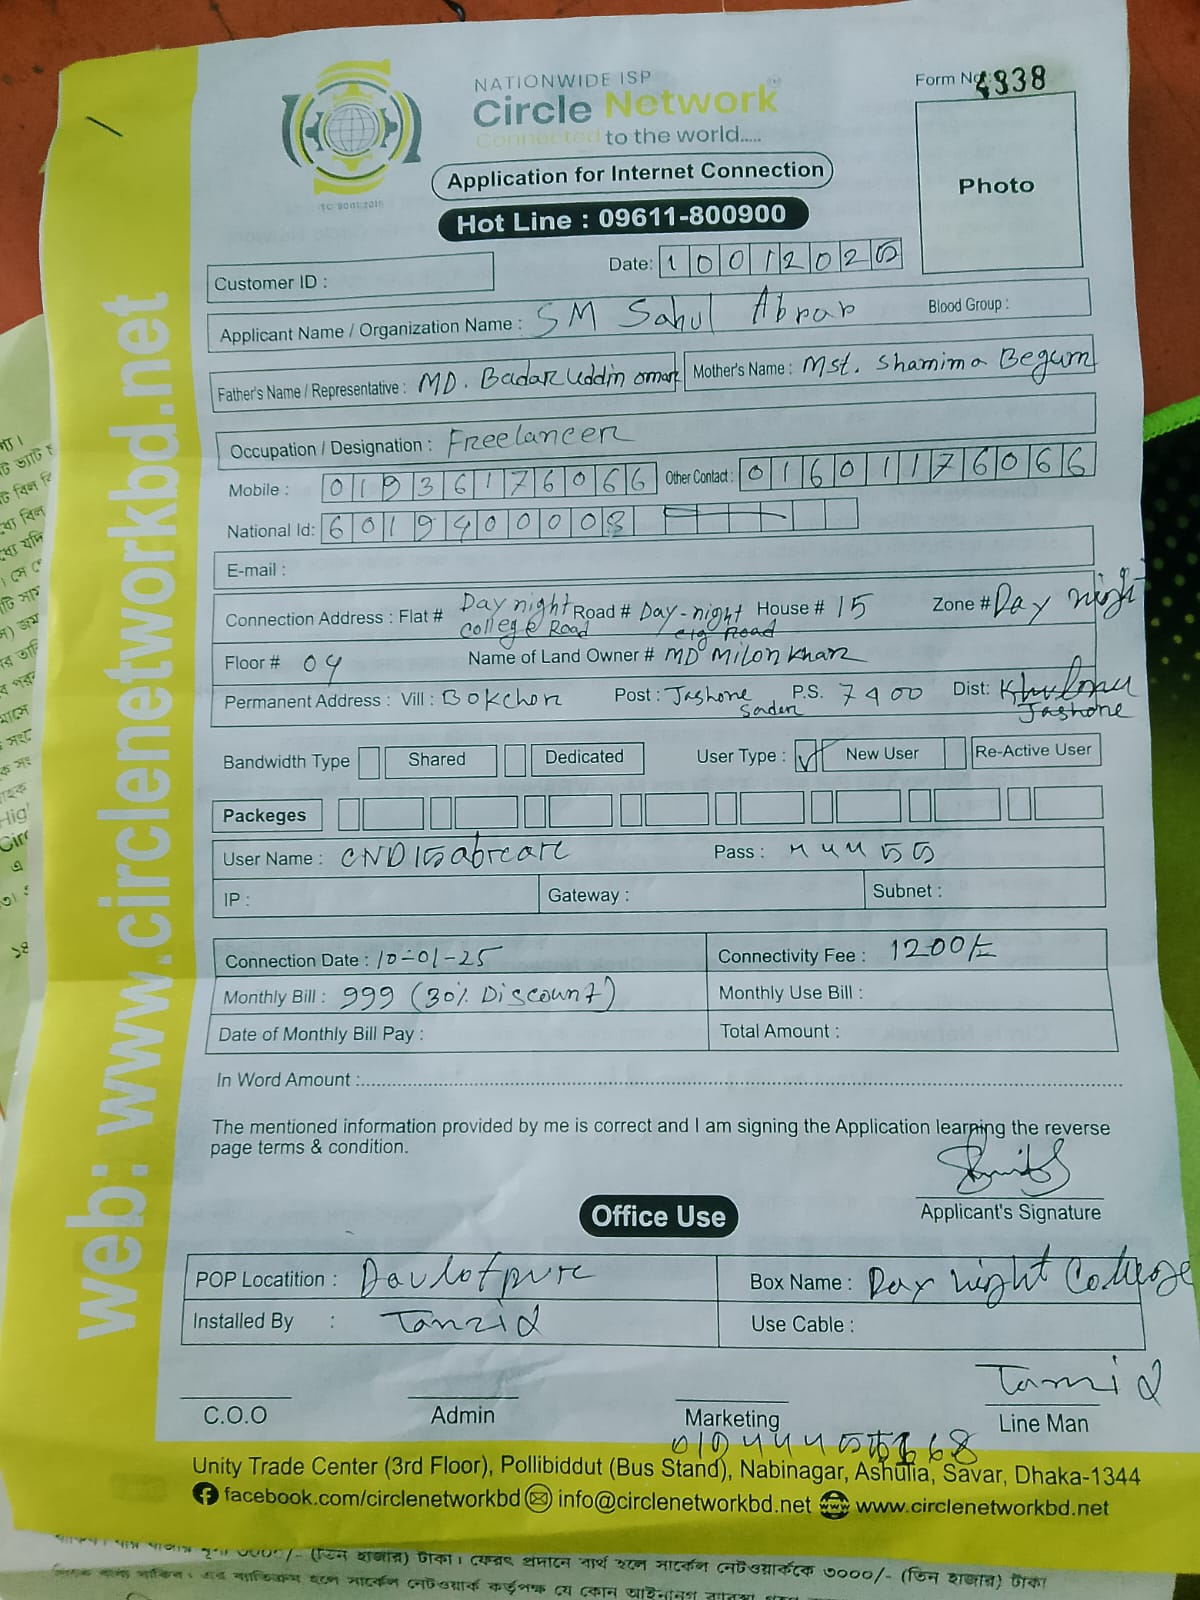 NATIONWIDE ISP
Circle Network
Connected to the world.....
Form No: 4338
Application for Internet Connection
Photo
Hot Line : 09611-800900
Date: 10012025
Customer ID :
Applicant Name / Organization Name : SM Sahul Abrar
Blood Group :
Father's Name / Representative : MD. Badar Uddin omar
Mother's Name : Mst. Shamima Begum
Occupation / Designation : Freelancer
Mobile : 01936176066 Other Contact : 01601176066
National Id: 6019400008
E-mail :
Connection Address : Flat # Day night College Road Road # Day-night clg Road House # 15 Zone # Day night
Floor # 04 Name of Land Owner # MD Milon Khan
Permanent Address : Vill : Bokchor Post : Jashore Sadar P.S. 7400 Dist: Khulna Jashore
Bandwidth Type Shared Dedicated User Type : New User Re-Active User
Packeges
User Name : CND15abrar Pass :
IP : Gateway : Subnet :
Connection Date : 10-01-25 Connectivity Fee : 1200/=
Monthly Bill : 999 (30% Discount) Monthly Use Bill :
Date of Monthly Bill Pay : Total Amount :
In Word Amount :
The mentioned information provided by me is correct and I am signing the Application learning the reverse
page terms & condition.
Applicant's Signature
Office Use
POP Locatition : Daulotpure Box Name : Day night College
Installed By : Tanzid Use Cable :
Tanzid
C.O.O Admin Marketing Line Man
Unity Trade Center (3rd Floor), Pollibiddut (Bus Stand), Nabinagar, Ashulia, Savar, Dhaka-1344
facebook.com/circlenetworkbd info@circlenetworkbd.net www.circlenetworkbd.net
web: www.circlenetworkbd.net
(তিন হাজার) টাকা। ফেরৎ প্রদানে ব্যর্থ হলে সার্কেল নেটওয়ার্ককে ৩০০০/- (তিন হাজার) টাকা